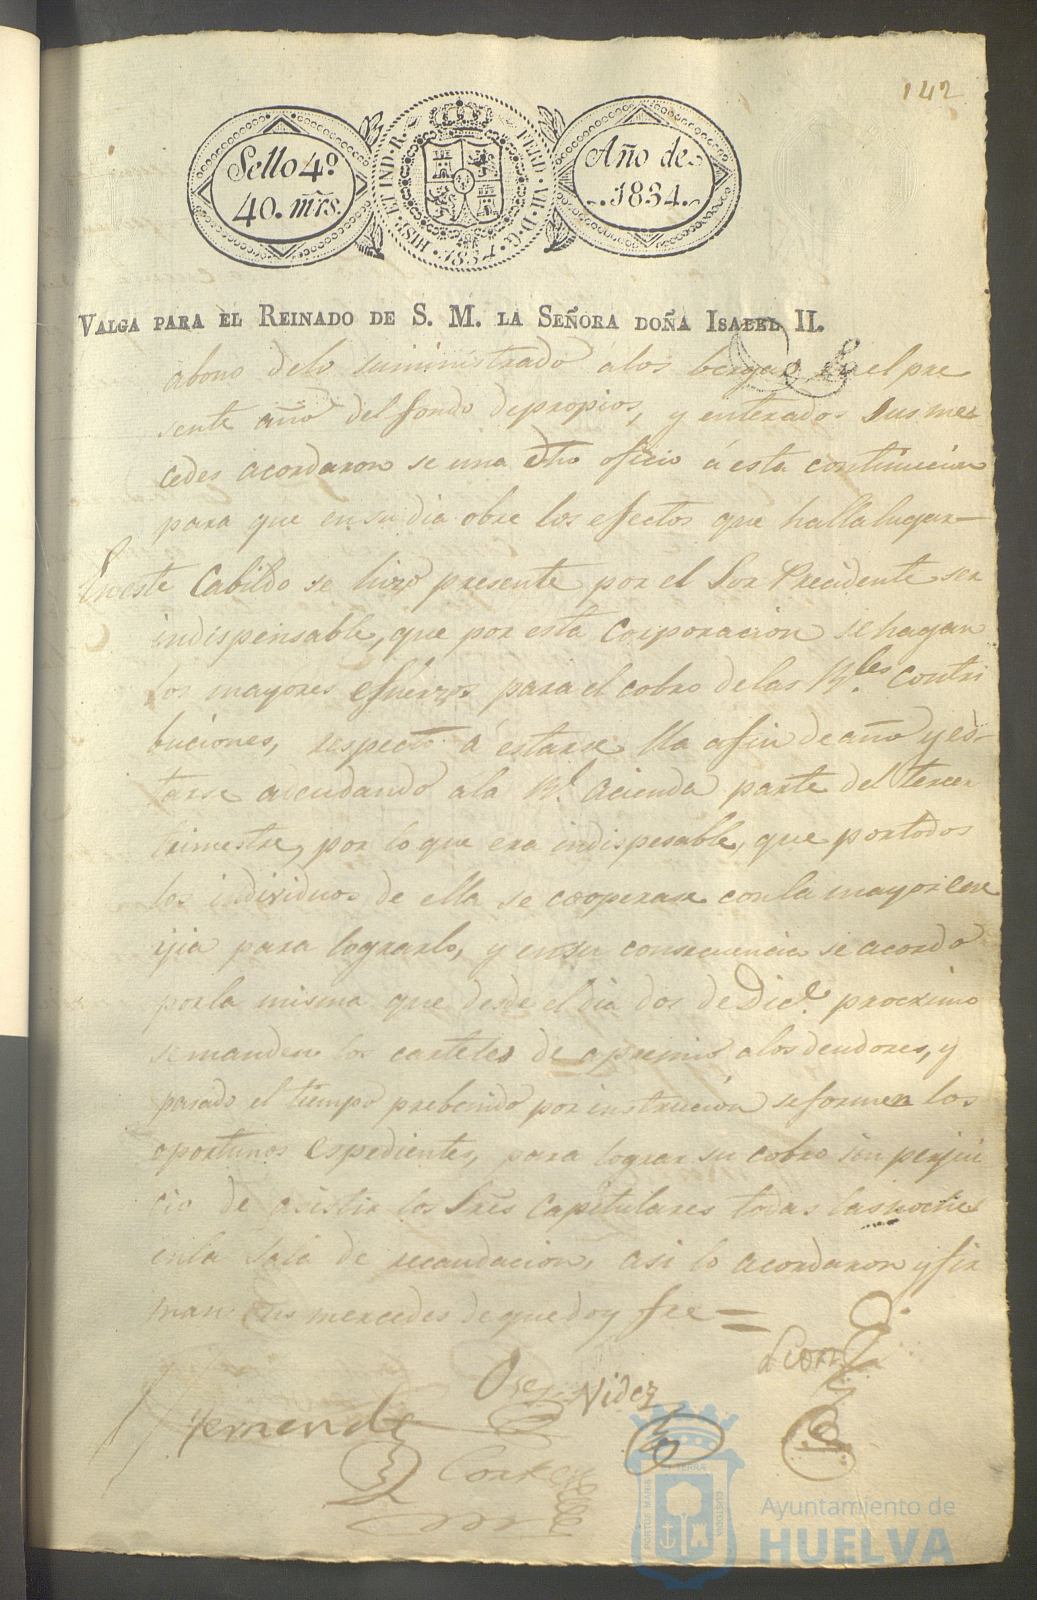 142
Sello 4º
40. mrs.
HISP. ET IND. R. FERD. VII. D. G. 1834.
Año de
1834.
VALGA PARA EL REINADO DE S. M. LA SEÑORA DOÑA ISABEL II.
abono delo suministrado alos el pre
sente año del fondo depropios, y enterados sus mer
cedes acordaron se una dho oficio á esta continuacion
para que ensudia obre los efectos que halla lugar
Eneste Cabildo se hizo presente por el Sor Precidente ser
indispensable, que por esta Corporacion se hagan
los mayores esfuerzos para el cobro delas Rles Contri
buciones, respecto á estarse lla afin de año y es-
tarse adeudando ala Rl. acienda parte del tercer
trimestre, por lo que era indispesable, que portodos
los individuos de ella se cooperase conla mayor ene
rjia para lograrlo, y ensu consecuencia se acordo
porla misma que desde el dia dos de Dice. procximo
semanden los carteles de apremio alos deudores, y
pasado el tiempo prebenido por instruccion seformen los
oportunos espedientes, para lograr su cobro sin perjui
cio de asistir los Sres Capitulares todas lasnoches
enla Sala de recaudacion, asi lo acordaron yfir
man sus mercedes dequedoy fee =
Leon
Nidez
Cortes
PORTUS MARIS ET TERRÆ CUSTODIA
Ayuntamiento de
HUELVA